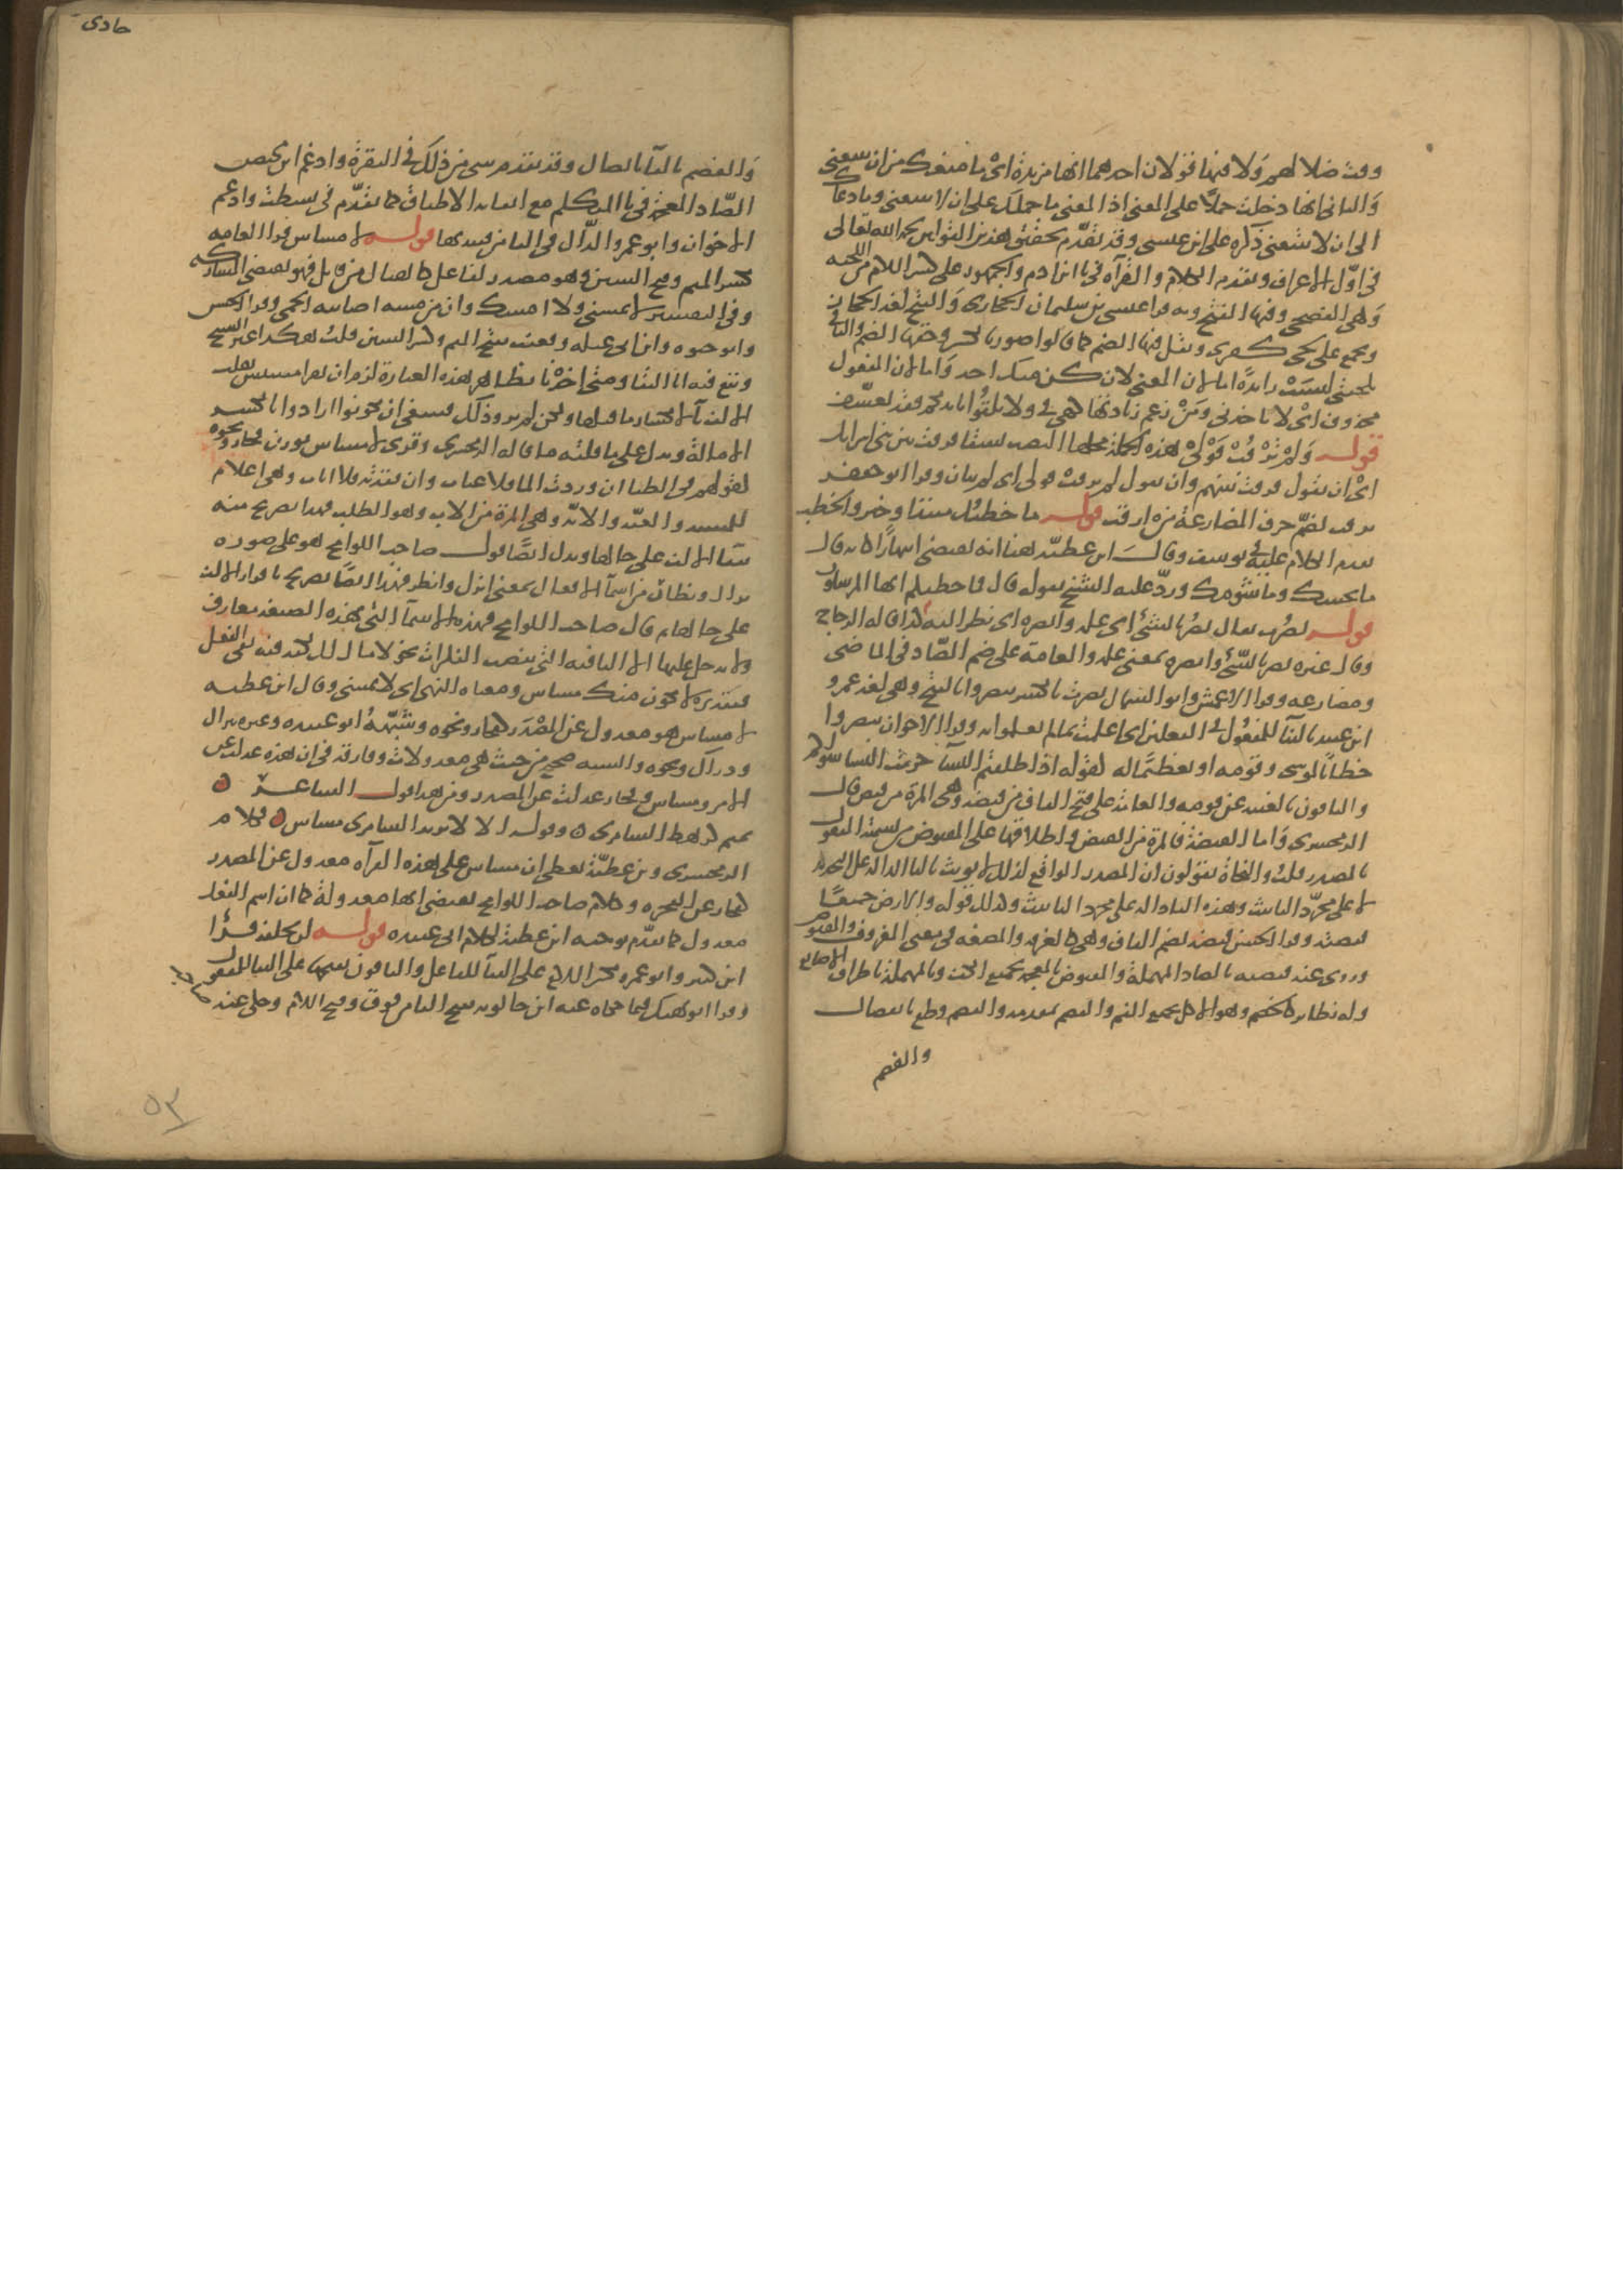 وقت ضلالهم ولا فيها قولان احدهما انها مزيدة اي ما منعك من ان تتبعني
والثاني انها دخلت حملا على المعنى اذ المعنى ما حملك على ان لا تتبعني وما دعاك
الى ان لا تتبعني ذكره علي بن عيسى وقد تقدم تحقيق هذين القولين بحمد الله تعالى
في اول الاعراف وتقدم الكلام والقراة في يا ابن ام والجمهور على كسر اللام من اللحية
وهي الفصحى وفيها الفتح وبه قرا عيسى بن سليمان الحجازي والفتح لغة الحجاز
ويجمع على لحى كقرب ونقل فيها الضم كما قالوا صور بالكسر وحقها الضم والباء في
بلحيتي ليست زايدة اما لان المعنى لا يكن منك اخذ واما لان المفعول
محذوف اي لا تاخذني ومن زعم زيادتها كهي في ولا تلقوا بايديكم فقد تعسف
قوله ولم ترقب قولي هذه الجملة محلها النصب نسقا فرقت بين بني اسرايل
اي ان تقول فرقت بينهم وان تقول لم ترقب قولي اي لم وقرا ابو جعفر
ترقب بضم حرف المضارعة من ارقب قوله ما خطبك مبتدا وخبر والخطب
تقدم الكلام عليه في يوسف وقال ابن عطية هنا انه يقتضي انتهارا كانه قال
ما نحسك وما شومك ورد عليه الشيخ بقوله قال فما خطبكم ايها المرسلون
قوله بصرت يقال بصر بالشئ اي علمه وابصره اي نظر اليه كذا قاله الزجاج
وقال غيره بصر بالشئ وابصره بمعنى علمه والعامة على ضم الصاد في الماضي
ومضارعه وقرا الاعمش وابو السمال بصرت بالكسر يبصروا بالفتح وهي لغة عمرو
ابن عبيد بالبنا للمفعول في الفعلين اي اعلمت بما لم يعلموا به وقرا الاخوان تبصروا
خطابا لموسى وقومه او تعظيما له كقوله اذا طلقتم النسا حرمت النسا سواكم
والباقون بالغيبة عن قومه والعامة على فتح القاف من قبضة وهي المرة من قبض قال
الزمخشري واما القبضة فالمرة من القبض واطلاقها على المقبوض من تسمية المفعول
بالمصدر قلت والنحاة يقولون ان المصدر الواقع كذلك لا يونث بالتا الدالة على التحديد
لا على مجرد التانيث وهذه التا دالة على مجرد التانيث وكذلك قوله والارض جميعا
قبضته وقرا الحسن قبضة بضم القاف وهي كالغرفة والمضغة في معنى المغروف والمقبوض
وروي عنه قبصة بالصاد المهملة والمقبوض بالمعجمة بجميع الكف وبالمهملة باطراف الاصابع
وله نظاير كالخضم وهو الاكل بجميع الفم والقضم بمقدمه والفصم قطع بانفصال
والفصم
حادي
والقصم بالقاف باتصال وقد تقدم شي من ذلك في البقرة وادغم ابن محيصن
الضاد المعجمة في تا المتكلم مع ابقاء الاطباق كما تقدم في بسطت وادغم
الاخوان وابو عمرو الذال في التا من فنبذتها قوله لا مساس قرا العامة
بكسر الميم وفتح السين وهو مصدر لفاعل كالقتال من قاتل فهو يقتضي المشاركة
وفي التفسير لا تمسني ولا امسك وان من مسه اصابته الحمى وقرا الحسن
وابو حيوة وابن ابي عبلة وقعنب بفتح الميم وكسر السين قلت هكذا عبر الشيخ
وتبع فيه ابا البقا ومتى اخذنا بظاهر هذه العبارة لزم ان يقرا مسيس بقلب
الالف يا لانكسار ما قبلها ولكن لم يرو ذلك فينبغي ان يكونوا ارادوا بالكسر
الامالة ويدل على ما قلته ما قاله الزمخشري وقري لا مساس بوزن فجار ونحوه
قولهم في الظبا ان وردت الماء فلا عباب وان فقدته فلا اباب وهي اعلام
للمسة والعبة والابة وهي المرة من الاب وهو الطلب فهذا تصريح منه
ببقا الالف على حالها ويدل ايضا قول صاحب اللوامح هو على صورة
نزال ونظار من اسما الافعال بمعنى انزل وانظر فهذا ايضا تصريح باقرار الالف
على حالها ثم قال صاحب اللوامح فهذه الاسما التي بهذه الصيغة معارف
ولا تدخل عليها لا النافية التي تنصب النكرات نحو لا مال لك لكنه فيه نفى الفعل
فتقديره لا يكون منك مساس ومعناه النهي اي لا تمسني وقال ابن عطية
لا مساس هو معدول عن المصدر كفجار ونحوه وشبهه ابو عبيدة وغيره بنزال
ودراك ونحوه والشبه صحيح من حيث هي معدولات وفارقه في ان هذه عدلت عن
الامر ومساس وفجار عدلت عن المصدر ومن هذا قول الشاعر ه
تميم كرهط السامري ه وقوله الا لا يريد السامري مساس ه فكلام
الزمخشري وبن عطية يعطي ان مساس على هذه القراة معدول عن المصدر
كفجار عن الفجرة وكلام صاحب اللوامح يقتضي انها معدولة كما ان اسم الفعل
معدول كما تقدم توجيه ابن عطية لكلام ابي عبيدة قوله لن تخلفه قرا
ابن كثير وابو عمرو بكسر اللام على البنا للفاعل والباقون بفتحها على البنا للمفعول
وقرا ابو نهيك فيما حكاه عنه ابن خالويه بفتح التا من فوق وضم اللام وحكى عنه صاحب
٥٣